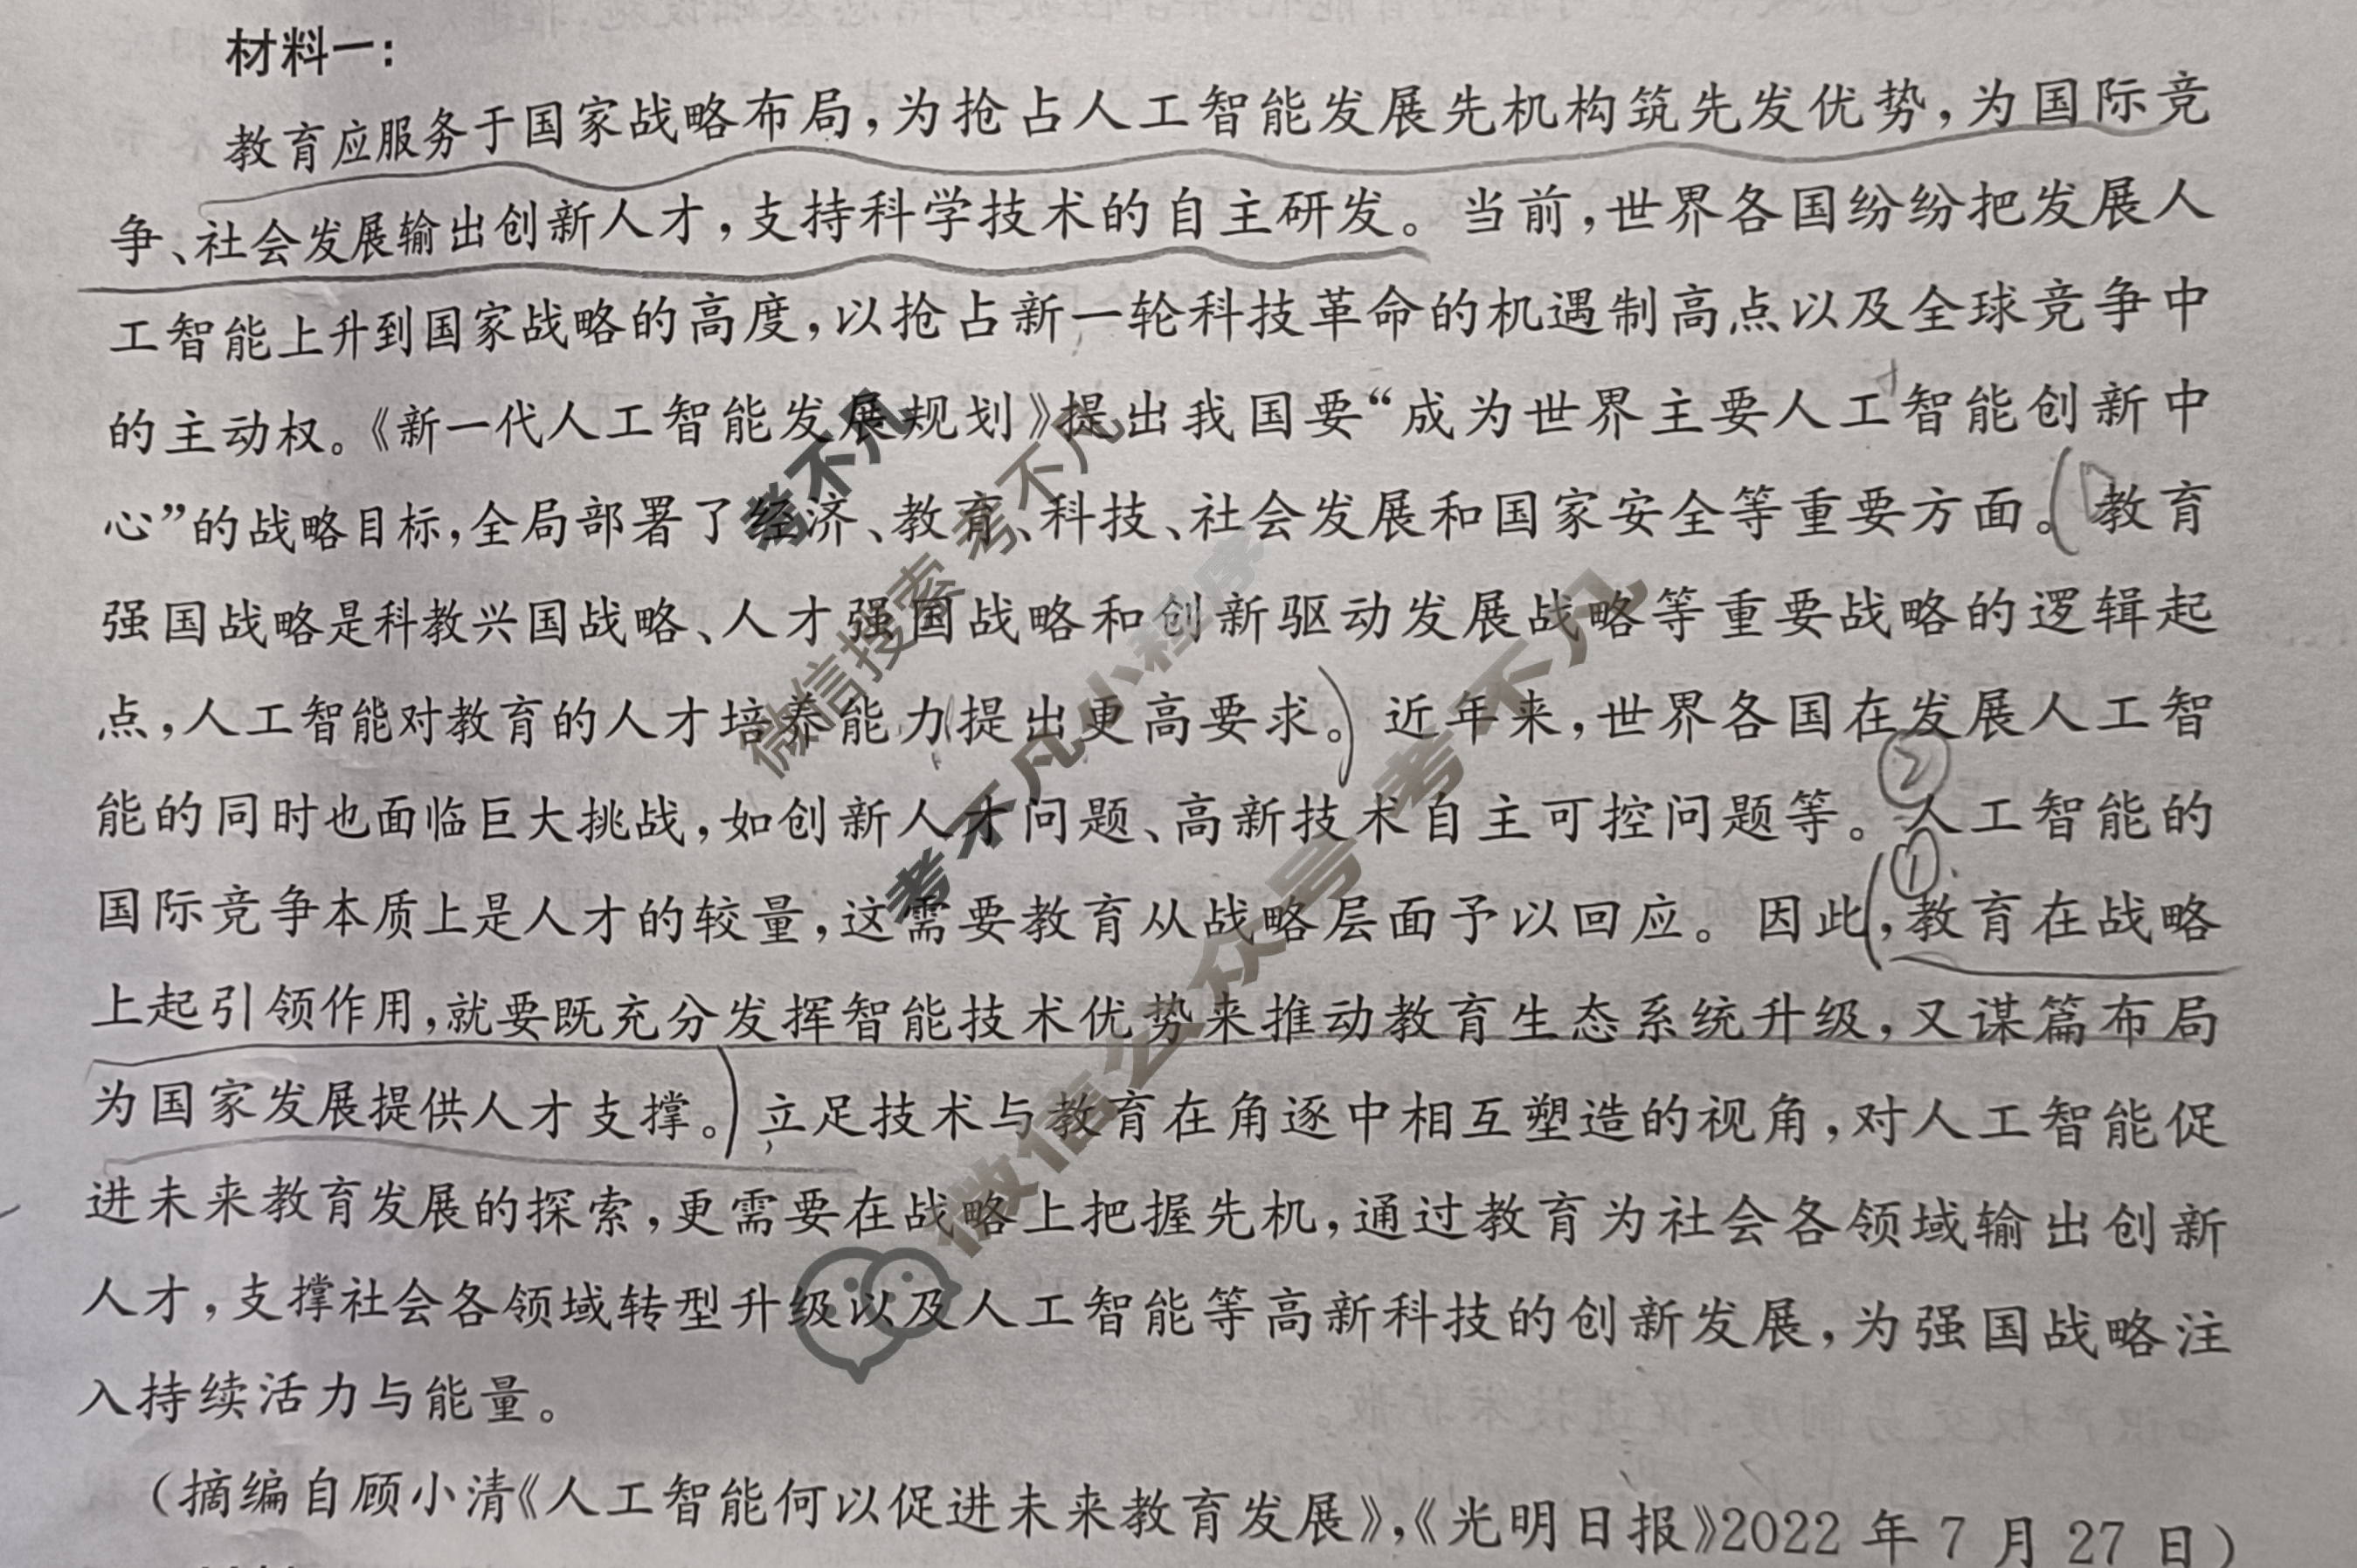 材料一：
教育应服务于国家战略布局，为抢占人工智能发展先机构筑先发优势，为国际竞
争、社会发展输出创新人才，支持科学技术的自主研发。当前，世界各国纷纷把发展人
工智能上升到国家战略的高度，以抢占新一轮科技革命的机遇制高点以及全球竞争中
的主动权。《新一代人工智能发展规划》提出我国要“成为世界主要人工智能创新中
心”的战略目标，全局部署了经济、教育、科技、社会发展和国家安全等重要方面。教育
强国战略是科教兴国战略、人才强国战略和创新驱动发展战略等重要战略的逻辑起
点，人工智能对教育的人才培养能力提出更高要求。近年来，世界各国在发展人工智
②
能的同时也面临巨大挑战，如创新人才问题、高新技术自主可控问题等。人工智能的
①
国际竞争本质上是人才的较量，这需要教育从战略层面予以回应。因此，教育在战略
上起引领作用，就要既充分发挥智能技术优势来推动教育生态系统升级，又谋篇布局
为国家发展提供人才支撑。立足技术与教育在角逐中相互塑造的视角，对人工智能促
进未来教育发展的探索，更需要在战略上把握先机，通过教育为社会各领域输出创新
人才，支撑社会各领域转型升级以及人工智能等高新科技的创新发展，为强国战略注
入持续活力与能量。
（摘编自顾小清《人工智能何以促进未来教育发展》，《光明日报》2022年7月27日）
考不凡
微信搜索 考不凡
考不凡小程序
微信公众号 考不凡